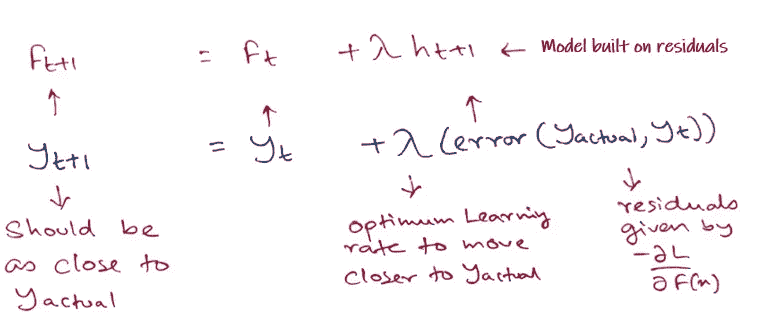 F_{t+1} = F_t + λ h_{t+1} ← Model built on residuals
↑ ↑ ↑
y_{t+1} = y_t + λ (error (yactual, y_t))
↓ ↓ ↓
Should be
as close to
yactual
optimum Learning
rate to move
closer to yactual
residuals
given by
-∂L
∂F(x)